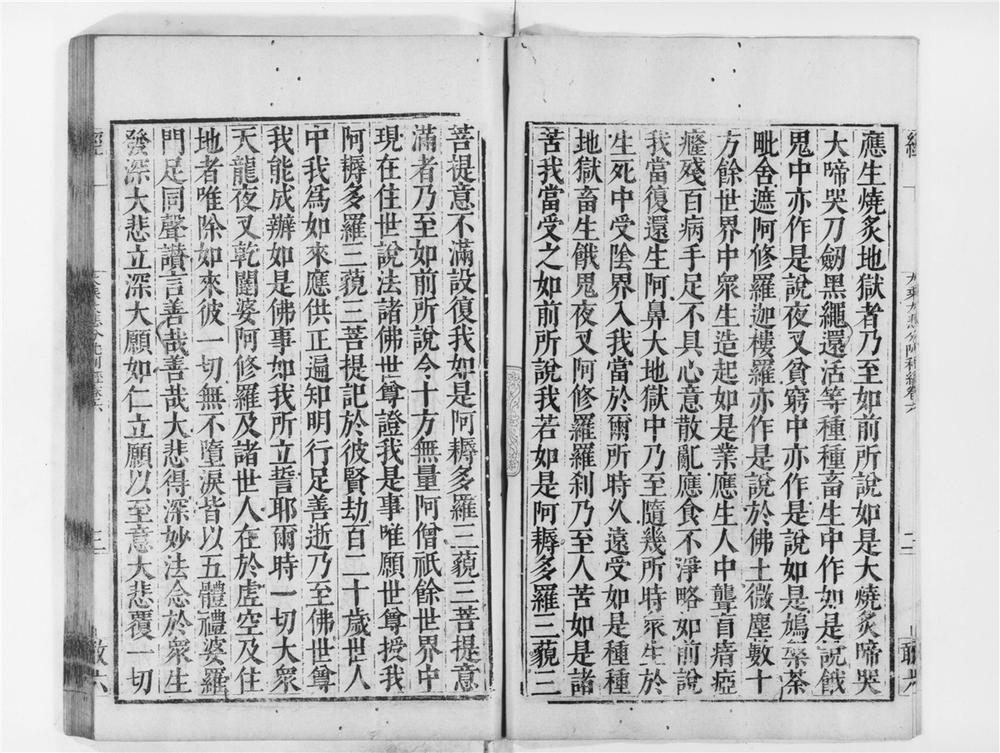 應生燒炙地獄者乃至如前所說如是大燒炙啼哭
大啼哭刀劒黑繩還活等種種畜生中作如是說餓
鬼中亦作是說夜叉貧窮中亦作是說如是鳩槃荼
毗舍遮阿修羅迦樓羅亦作是說於佛土微塵數十
方餘世界中衆生造起如是業應生人中聾盲瘖瘂
癃殘百病手足不具心意散亂應食不淨略如前說
我當復還生阿鼻大地獄中乃至隨幾所時衆生於
生死中受陰界入我當於爾所時久遠受如是種種
地獄畜生餓鬼夜叉阿修羅羅刹乃至人苦如是諸
苦我當受之如前所說我若如是阿耨多羅三藐三
菩提意不滿設復我如是阿耨多羅三藐三菩提意
滿者乃至如前所說今十方無量阿僧祇餘世界中
現在住世說法諸佛世尊證我是事唯願世尊授我
阿耨多羅三藐三菩提記於彼賢劫百二十歲世人
中我爲如來應供正遍知明行足善逝乃至佛世尊
我能成辦如是佛事如我所立誓耶爾時一切大衆
天龍夜叉乾闥婆阿修羅及諸世人在於虛空及住
地者唯除如來彼一切無不墮淚皆以五體禮婆羅
門足同聲讚言善哉善哉大悲得深妙法念於衆生
發深大悲立深大願如仁立願以至意大悲覆一切
經
三
敢六